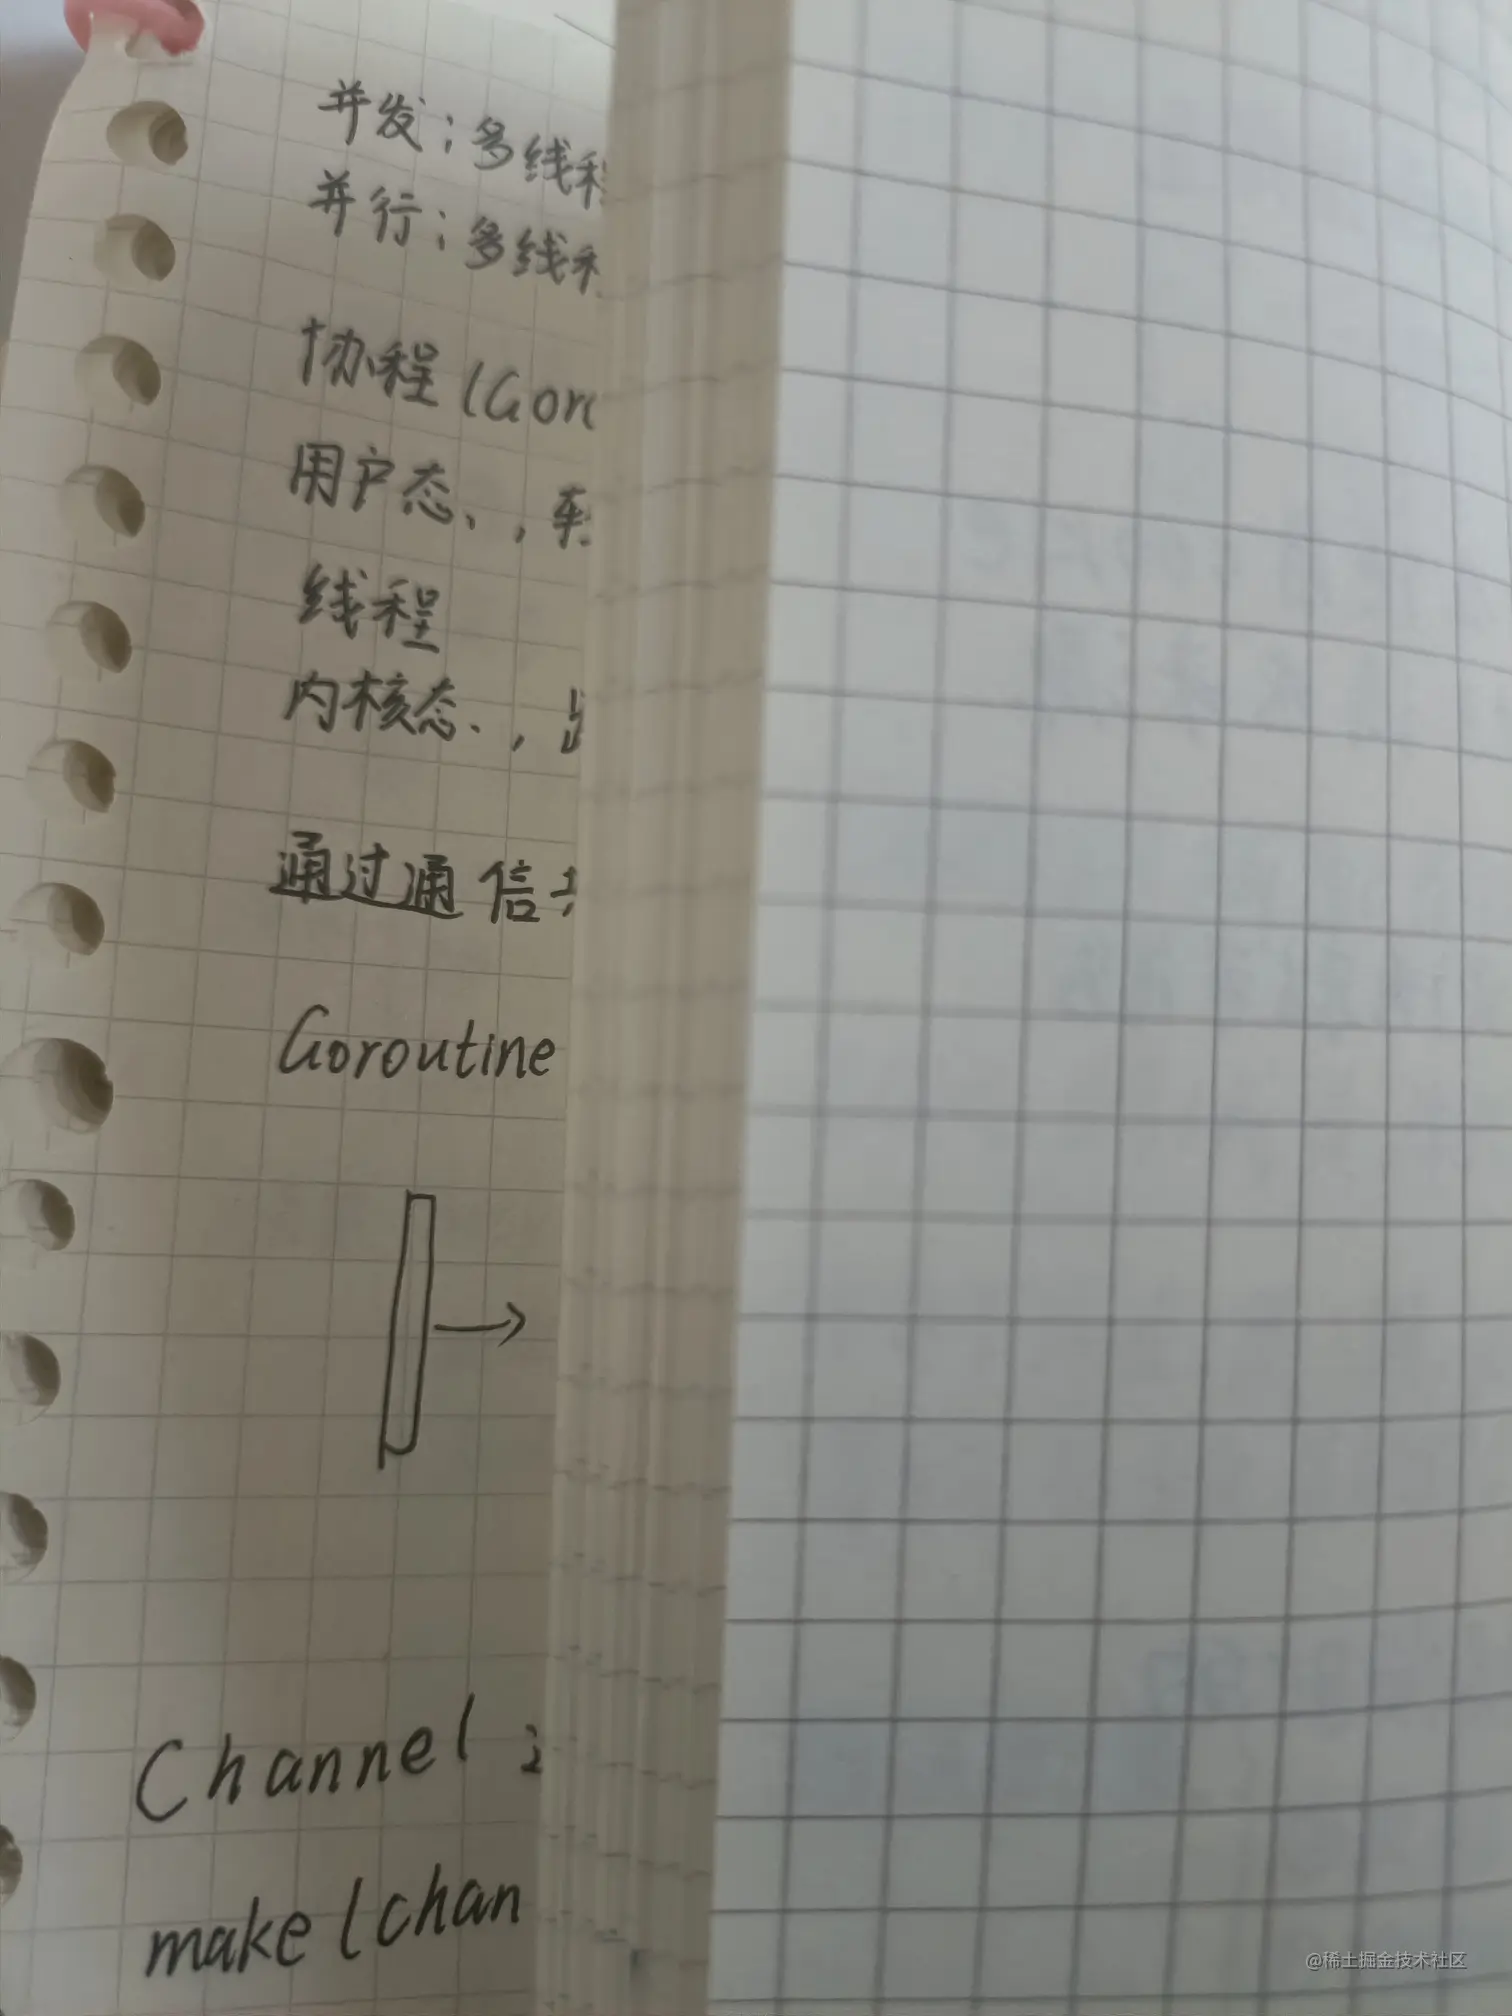 并发:多线
并行:多线
协程(Goro
用户态,
线程
内核态,
通过通信
Goroutine
Channel:
make(chan
@稀土掘金技术社区